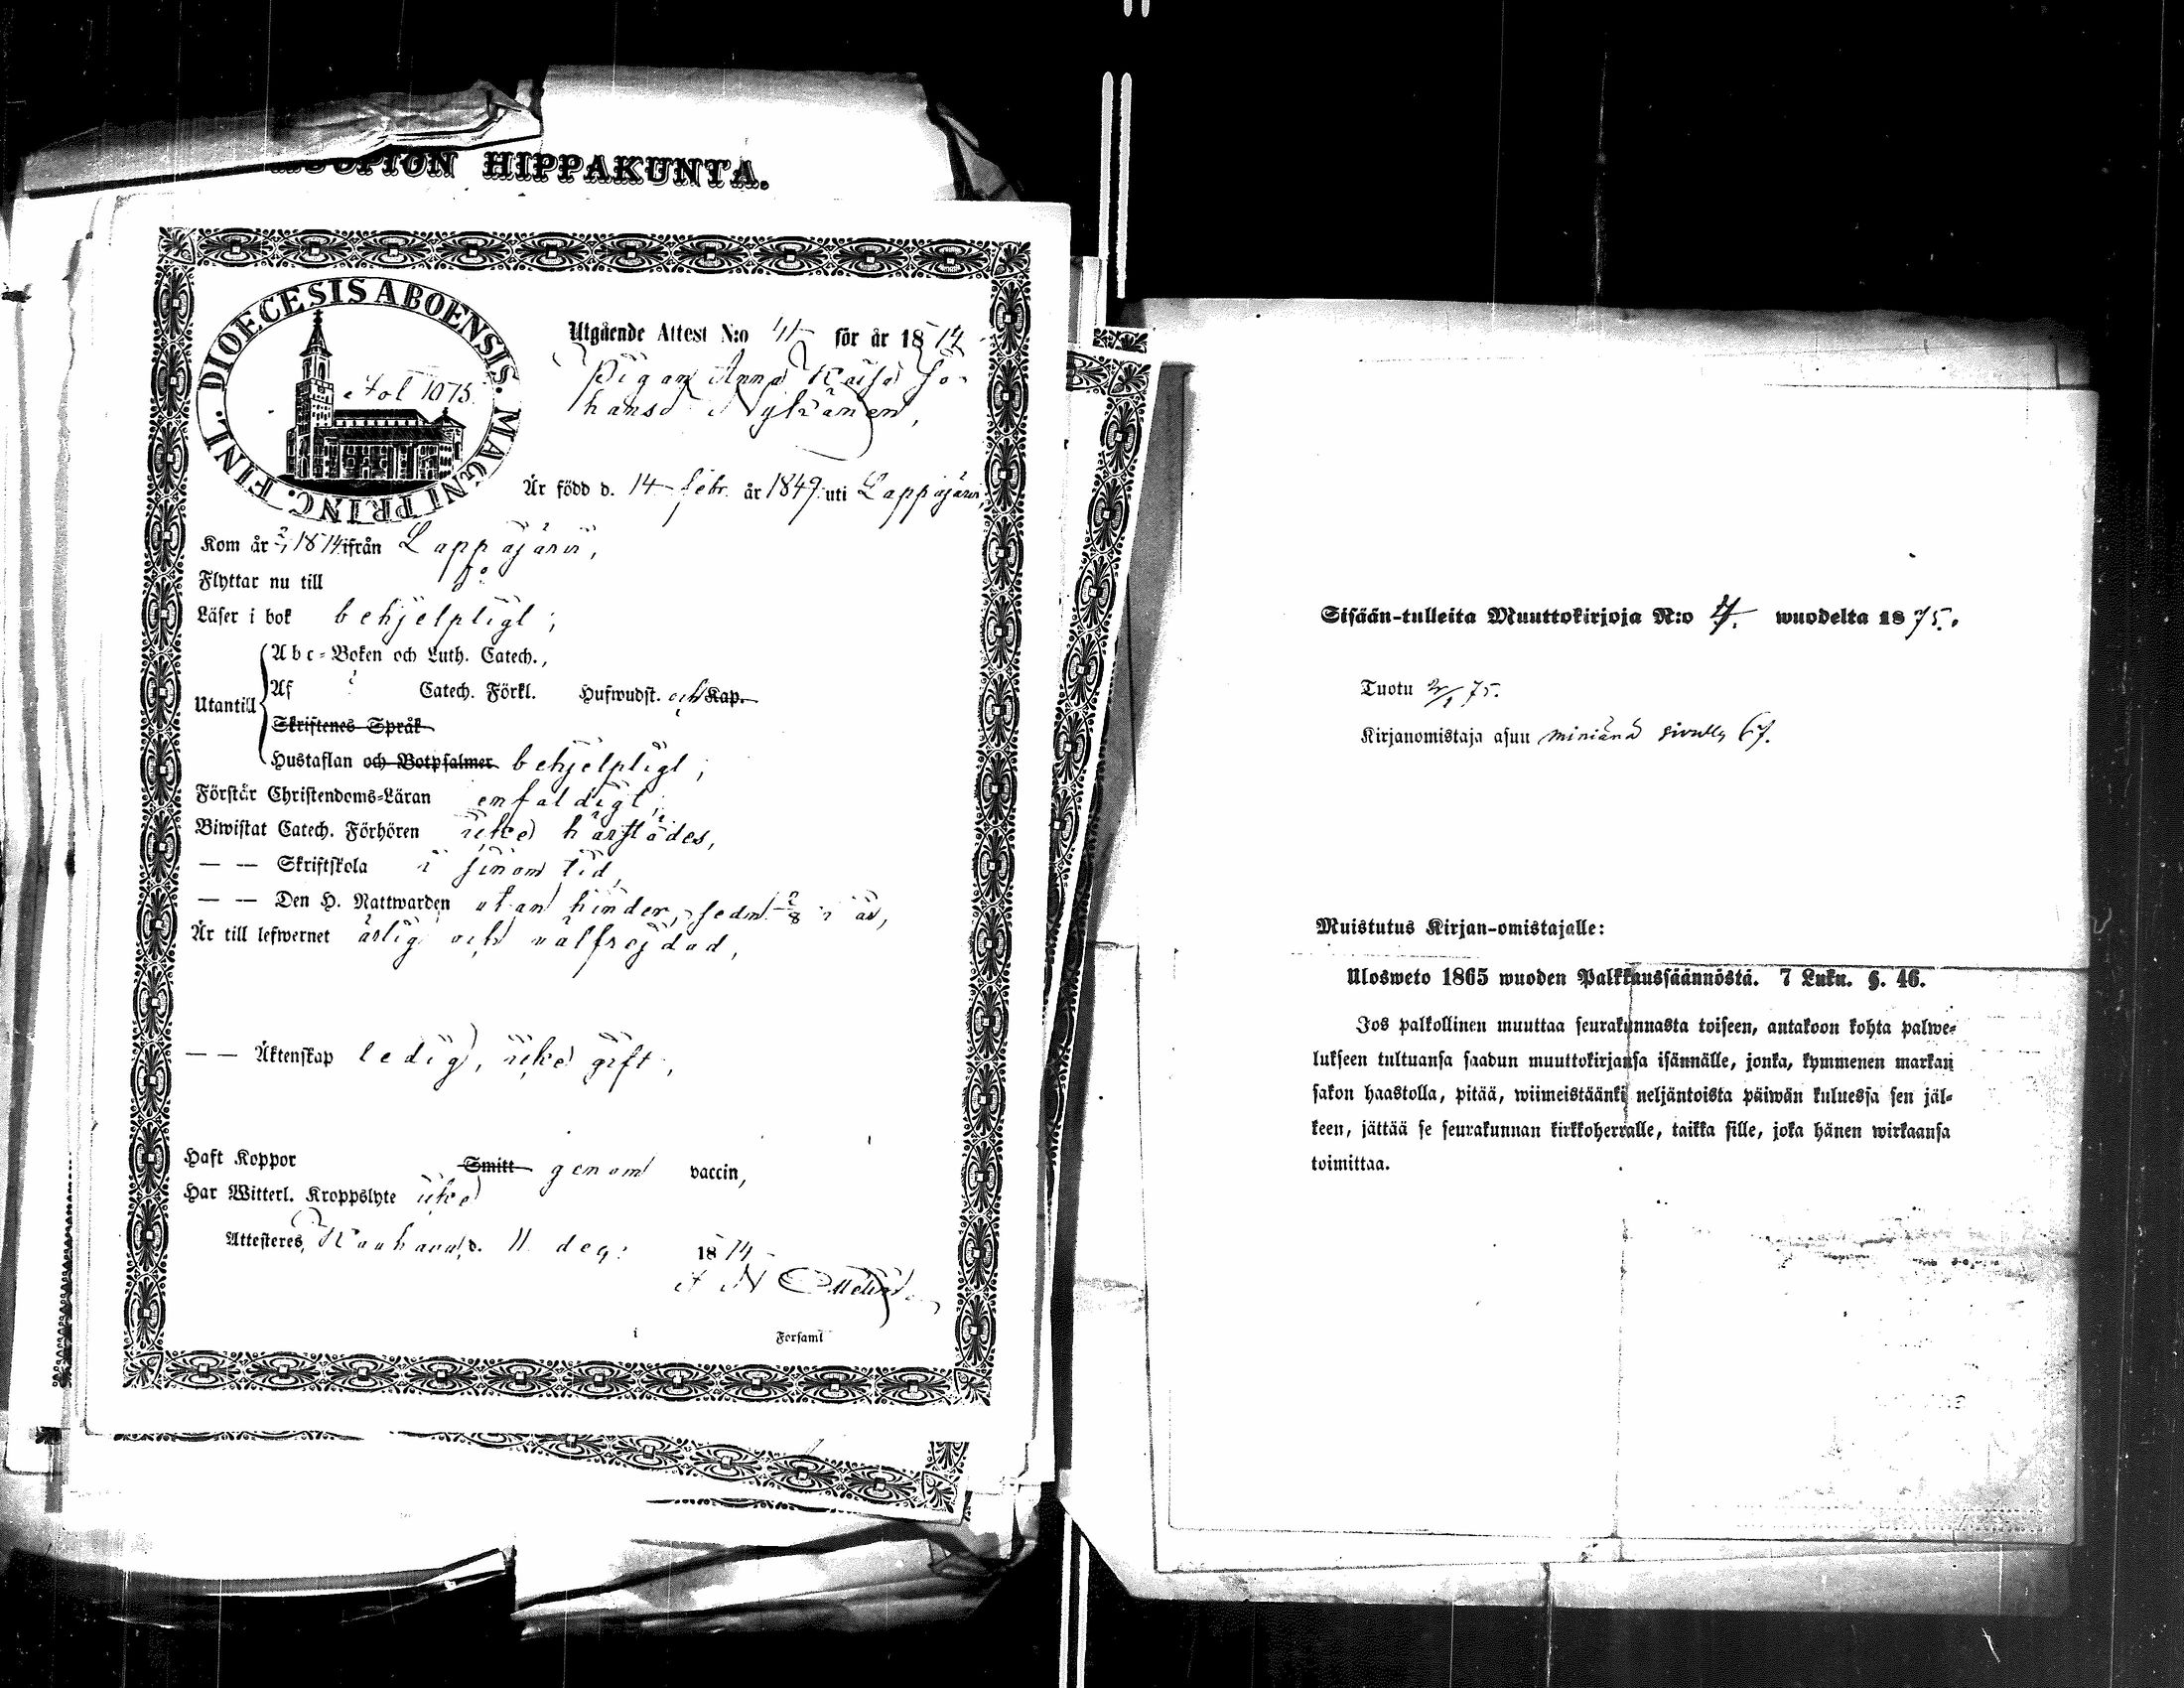 KUOPION HIPPAKUNTA.
DIOECESIS ABOENSIS. MAGNI PRINC. FINL.
Fol 1075.
Utgående Attest N:o 41 för år 1874
Pigan Anna Kaisa Jo-
hansd. Nykänen,
Är född d. 14 febr. år 1849 uti Lappajärvi,
Kom år 1874 ifrån Lappajärvi,
Flyttar nu till do
Läser i bok behjelpligt;
Utantill
Abc-Boken och Luth. Catech.,
Af Catech. Förkl. Hufwudst. och Kap.
Skriftenes Språk
Hustaflan och Botpsalmer behjelpligt;
Förstår Christendoms-Läran enfaldigt;
Biwistat Catech. Förhören icke härstädes,
— — Skriftskola i sinom tid,
— — Den H. Nattwarden utan hinder, sedn. 2/8 i år,
Är till lefwernet ärlig och välfrejdad,
— — Äktenskap ledig, icke gift;
Haft Koppor Smitt genom vaccin,
Har Witterl. Kroppslyte icke
Attesteres, Kauhava, d. 11 deq: 1874
i Forsaml
Sisään-tulleita Muuttokirjoja N:o 4. wuodelta 1875.
Tuotu 2/1 75.
Kirjanomistaja asuu miniänä sivulla 67.
Muistutus Kirjan-omistajalle:
Ulosweto 1865 wuoden Palkkaussäännöstä. 7 Luku. §. 46.
Jos palkollinen muuttaa seurakunnasta toiseen, antakoon kohta palwe-
lukseen tultuansa saadun muuttokirjansa isännälle, jonka, kymmenen markan
sakon haastolla, pitää, wiimeistäänki neljäntoista päiwän kuluessa sen jäl-
keen, jättää se seurakunnan kirkkoherralle, taikka sille, joka hänen wirkaansa
toimittaa.